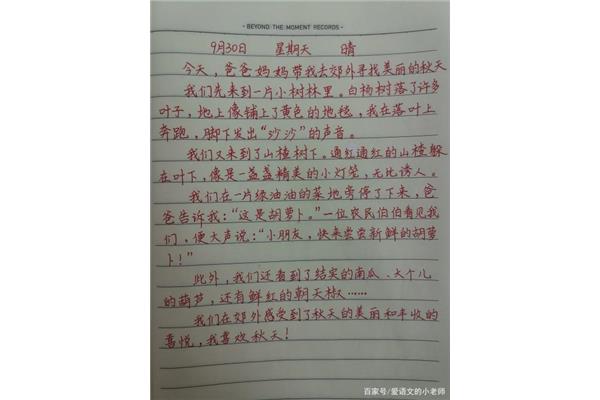 - BEYOND THE MOMENT RECORDS -
9月30日 星期天 晴
今天，爸爸妈妈带我去郊外寻找美丽的秋天
我们先来到一片小树林里。白杨树落了许多
叶子，地上像铺上了黄色的地毯，我在落叶上
奔跑，脚下发出“沙沙”的声音。
我们又来到了山楂树下。通红通红的山楂躲
在叶下，像是一盏盏精美的小灯笼，无比诱人。
我们在一片绿油油的菜地旁停了下来，爸
爸告诉我：“这是胡萝卜。”一位农民伯伯看见我
们，便大声说：“小朋友，快来尝尝新鲜的胡萝
卜！”
此外，我们还看到了结实的南瓜、大个儿
的葫芦，还有鲜红的朝天椒……
我们在郊外感受到了秋天的美丽和丰收的
喜悦，我喜欢秋天！
百家号/爱语文的小老师